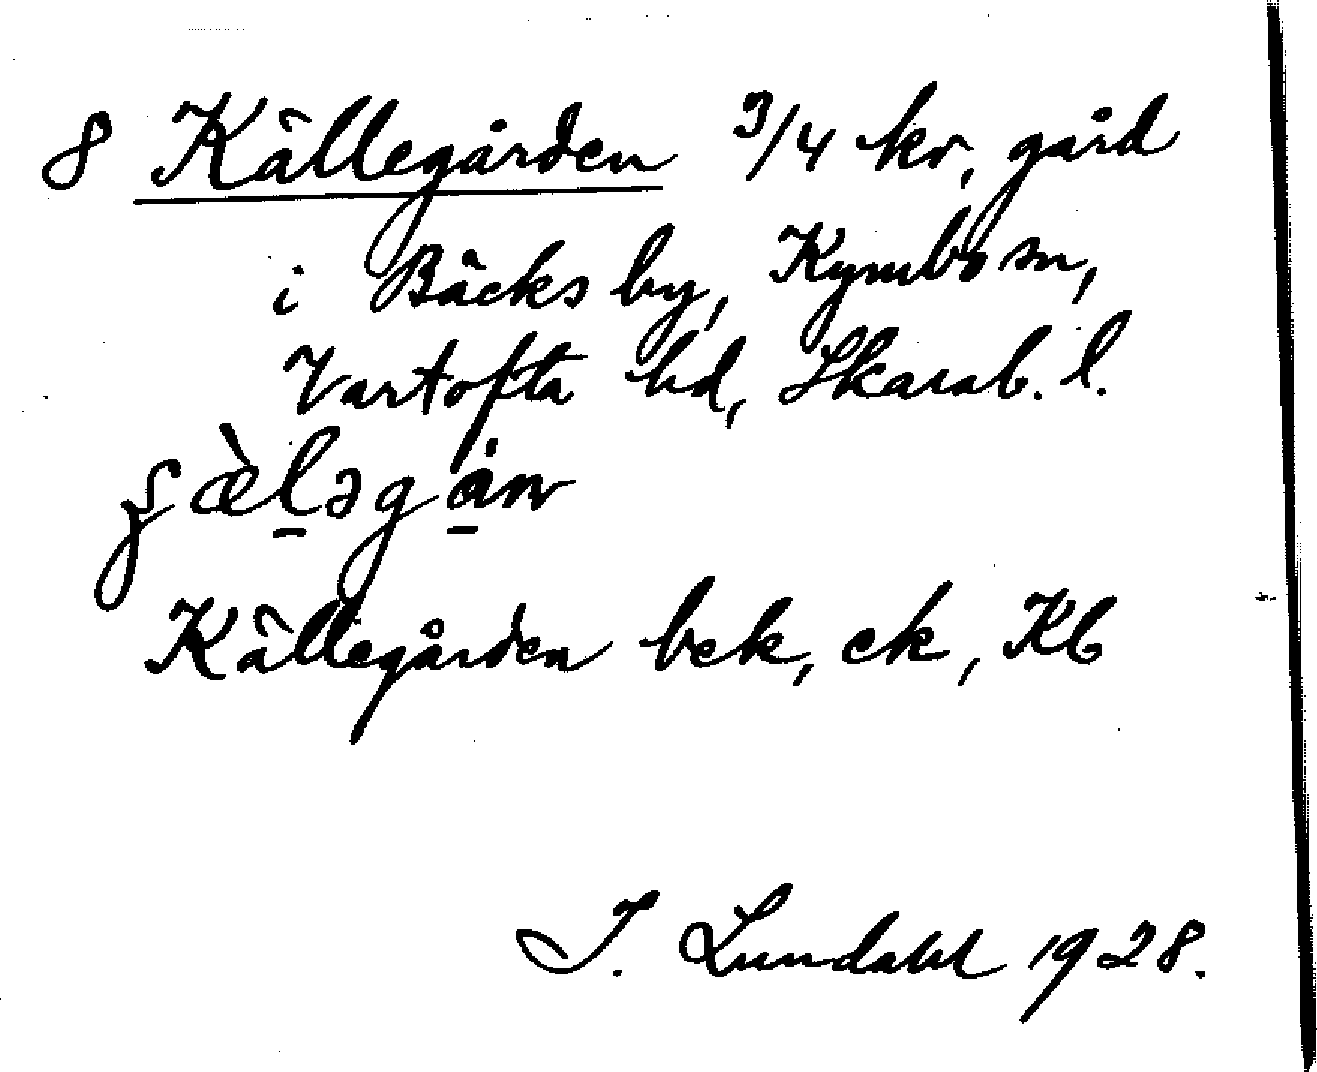 8 Källegården 3/4 kr, gård
i Bäcks by, Kymbo sn,
Vartofta hd, Skarab. l.
Källegården bek, ek, Kb
I. Lundahl 1928.